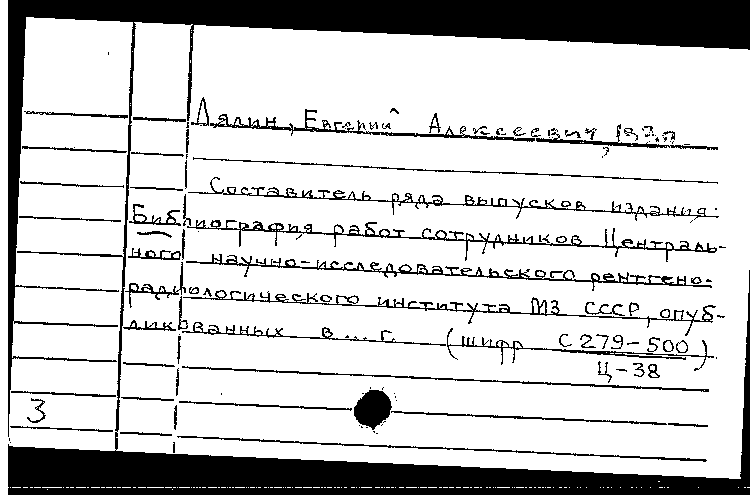 Лялин, Евгений Алексеевич,
Составитель ряда выпусков издания:
Библиография работ сотрудников Централь-
ного научно-исследовательского рентгено-
радиологического института МЗ СССР, опуб-
ликованных в ... г. (шифр С279-500)
Ц-38
3